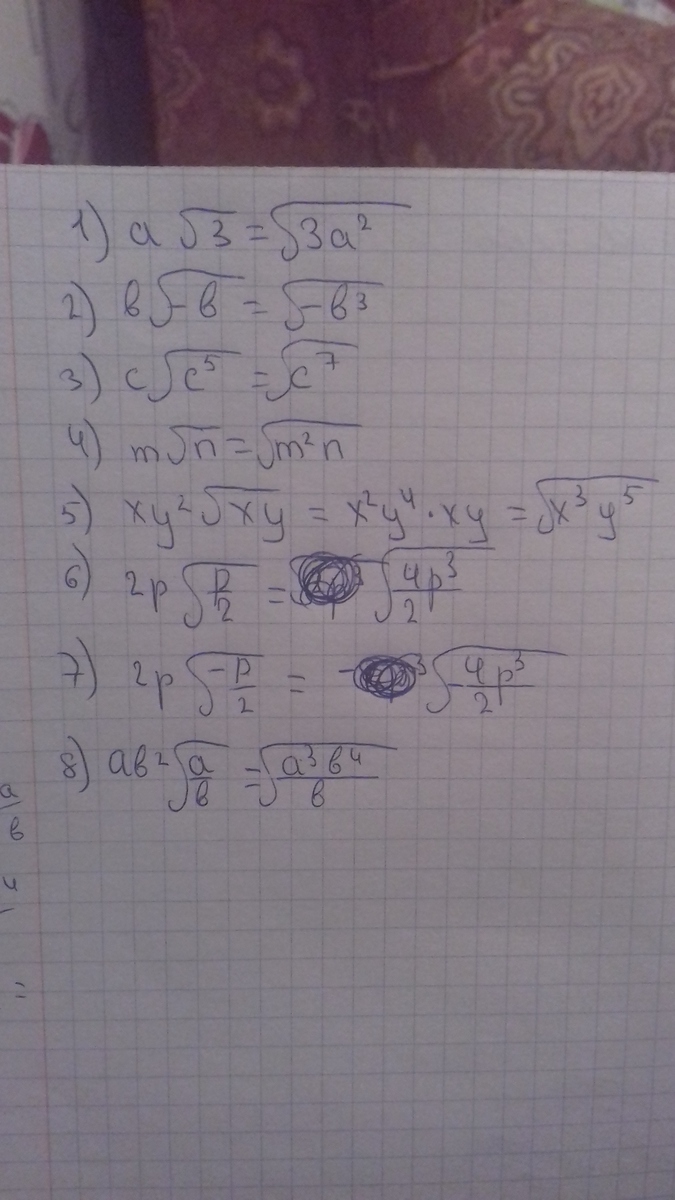 1) a √3 = √3a²
2) в√-в = √-в³
3) c√c⁵ = √c⁷
4) m√n = √m²n
5) xy² √xy = x²y⁴ · xy = √x³y⁵
6) 2p √p/2 = √4p³/2
7) 2p √-p/2 = √-4p³/2
8) aв² √a/в = √a³в⁴/в
a/в
4
=